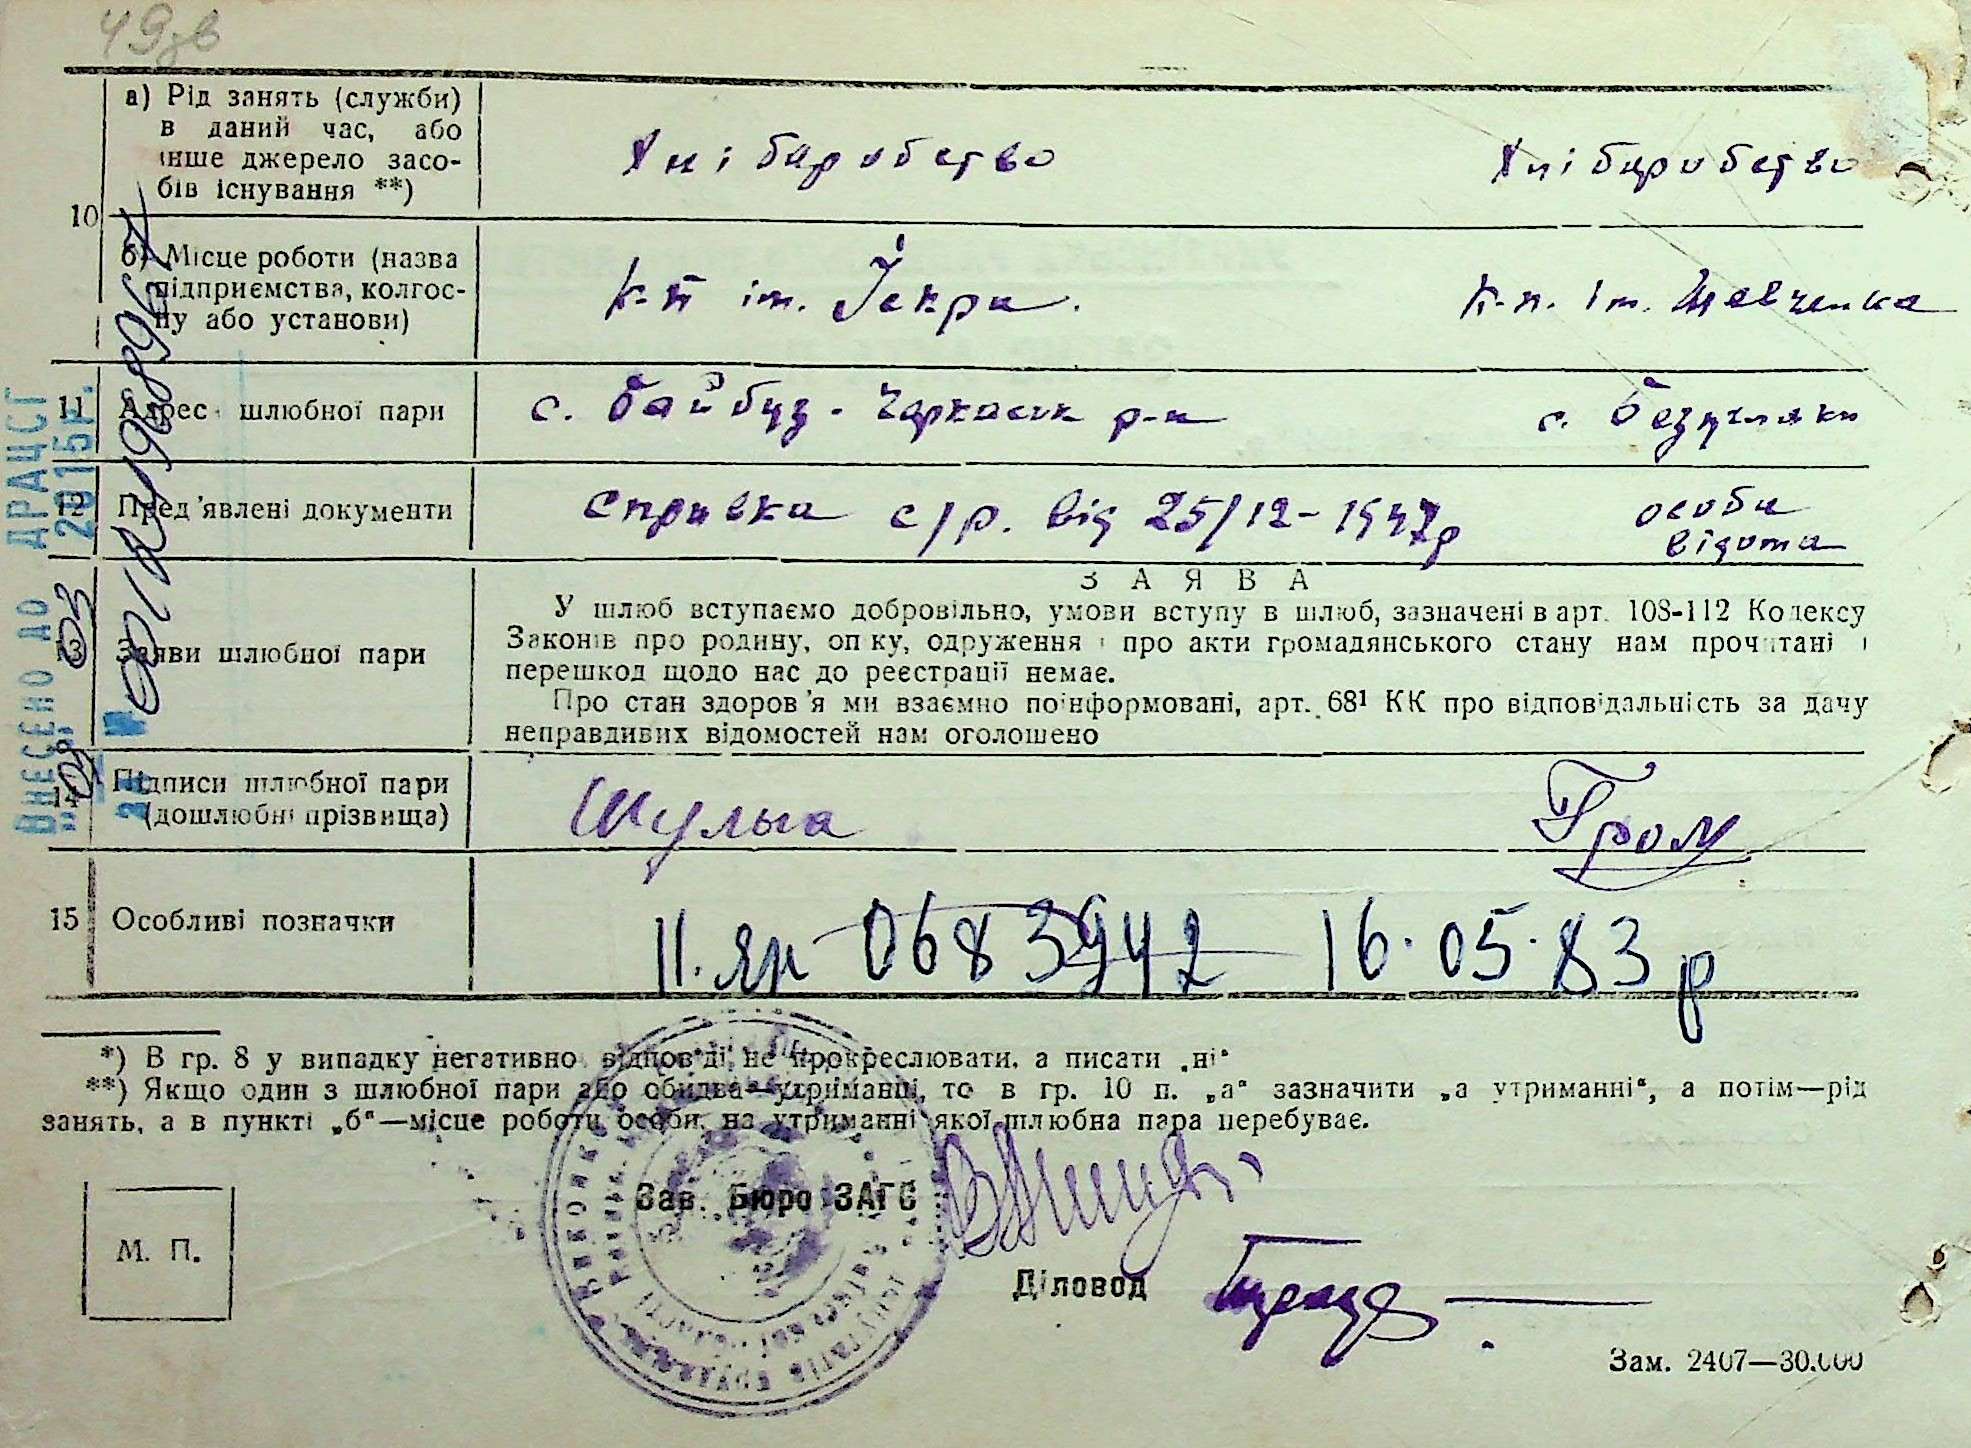 49зв
а) Рід занять (служби)
в даний час, або
інше джерело засо-
бів існування **)
Хлібаробство Хлібаробство
10
б) Місце роботи (назва
підприємства, колгос-
пу або установи)
К-п ім. Іскри. К-п. ім. Шевченка
11 Адрес шлюбної пари с. Байбузи Черкаськ р-н
12 Пред'явлені документи справка с/р. від 25/12-1947р особа
відома
З А Я В А
У шлюб вступаємо добровільно, умови вступу в шлюб, зазначені в арт. 108-112 Кодексу
Законів про родину, опіку, одруження і про акти громадянського стану нам прочитані і
перешкод щодо нас до реєстрації немає.
13 Заяви шлюбної пари
Про стан здоров'я ми взаємно поінформовані, арт. 68¹ КК про відповідальність за дачу
неправдивих відомостей нам оголошено
14 Підписи шлюбної пари
(дошлюбні прізвища)
Шульга Гром
15 Особливі позначки
II. ЯР 0683942 16.05.83р
*) В гр. 8 у випадку негативно відповіді, не прокреслювати, а писати „ні“
**) Якщо один з шлюбної пари або обидва—утриманці, то в гр. 10 п. „а“ зазначити „а утриманні“, а потім—рід
занять, а в пункті „б“—місце роботи особи, на утриманні якої шлюбна пара перебуває.
Зав. Бюро ЗАГС
М. П.
Діловод
Зам. 2407—30.000
ВНЕСЕНО ДО ДРАЦСГ
03 2015р.